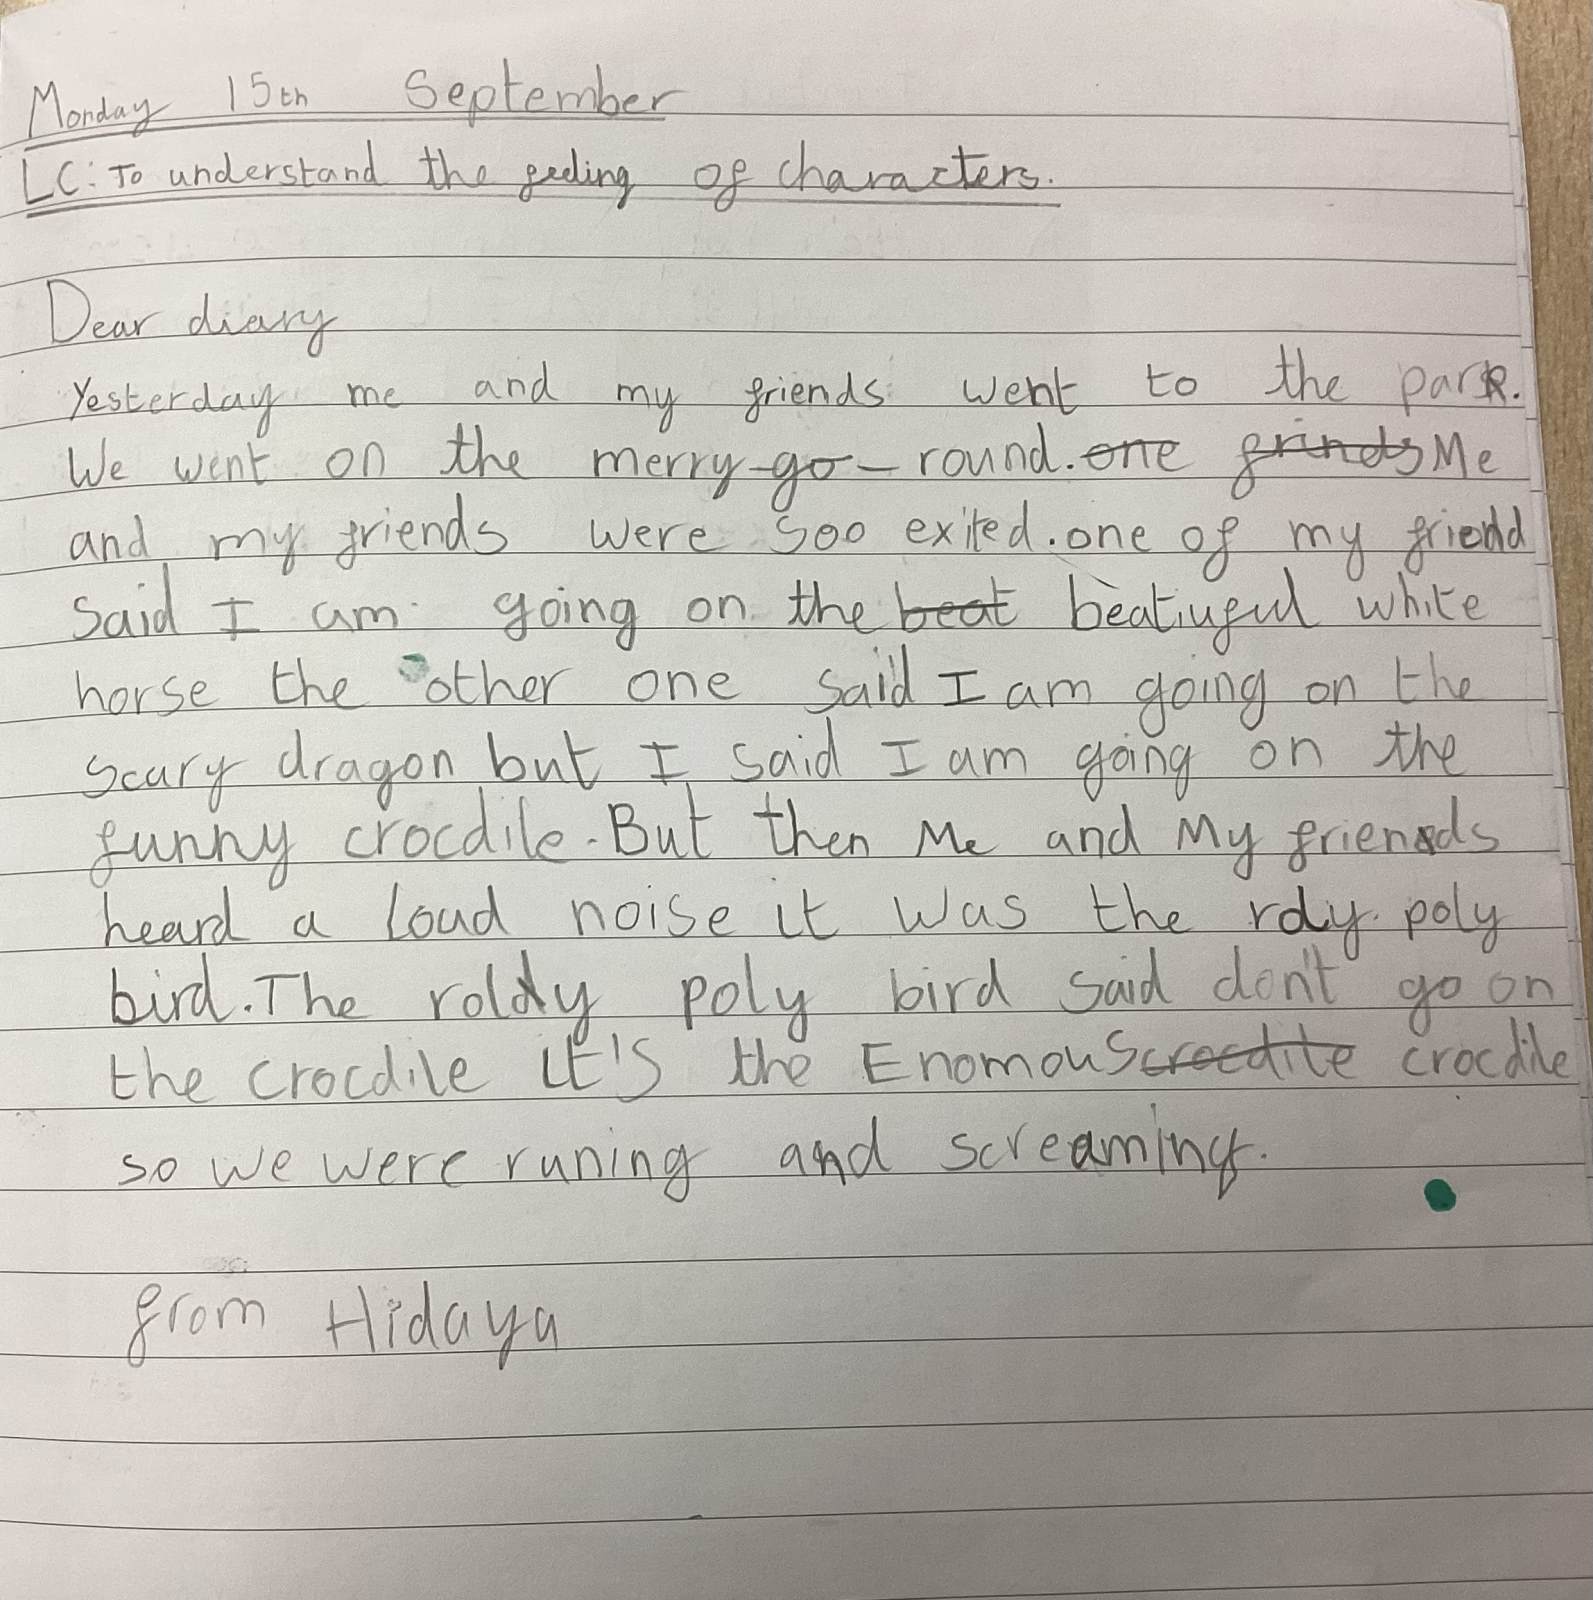 Monday 15th September
LC: To understand the feeling of characters.
Dear diary
Yesterday me and my friends went to the park.
We went on the merry-go-round. ~~one~~ ~~frinds~~ Me
and my friends were soo exited. one of my friend
said I am going on the ~~beat~~ beatiuful white
horse the other one said I am going on the
scary dragon but I said I am going on the
funny crocdile. But then Me and My friends
heard a loud noise it was the roly poly
bird. The roldy poly bird said don't go on
the crocdile it's the Enomous ~~crocdile~~ crocdile
so we were runing and screaming.
from Hidaya